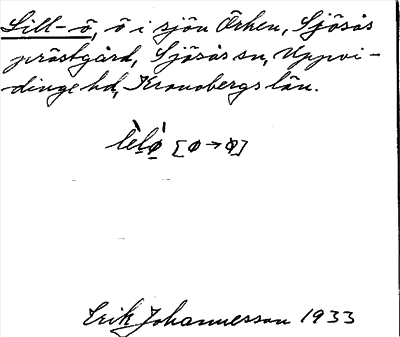 Lill-ö, ö i sjön Örken, Sjösås
prästgård, Sjösås sn, Uppvi-
dinge hd, Kronobergs län.
lèlǿ [ø→ø]
Erik Johannesson 1933